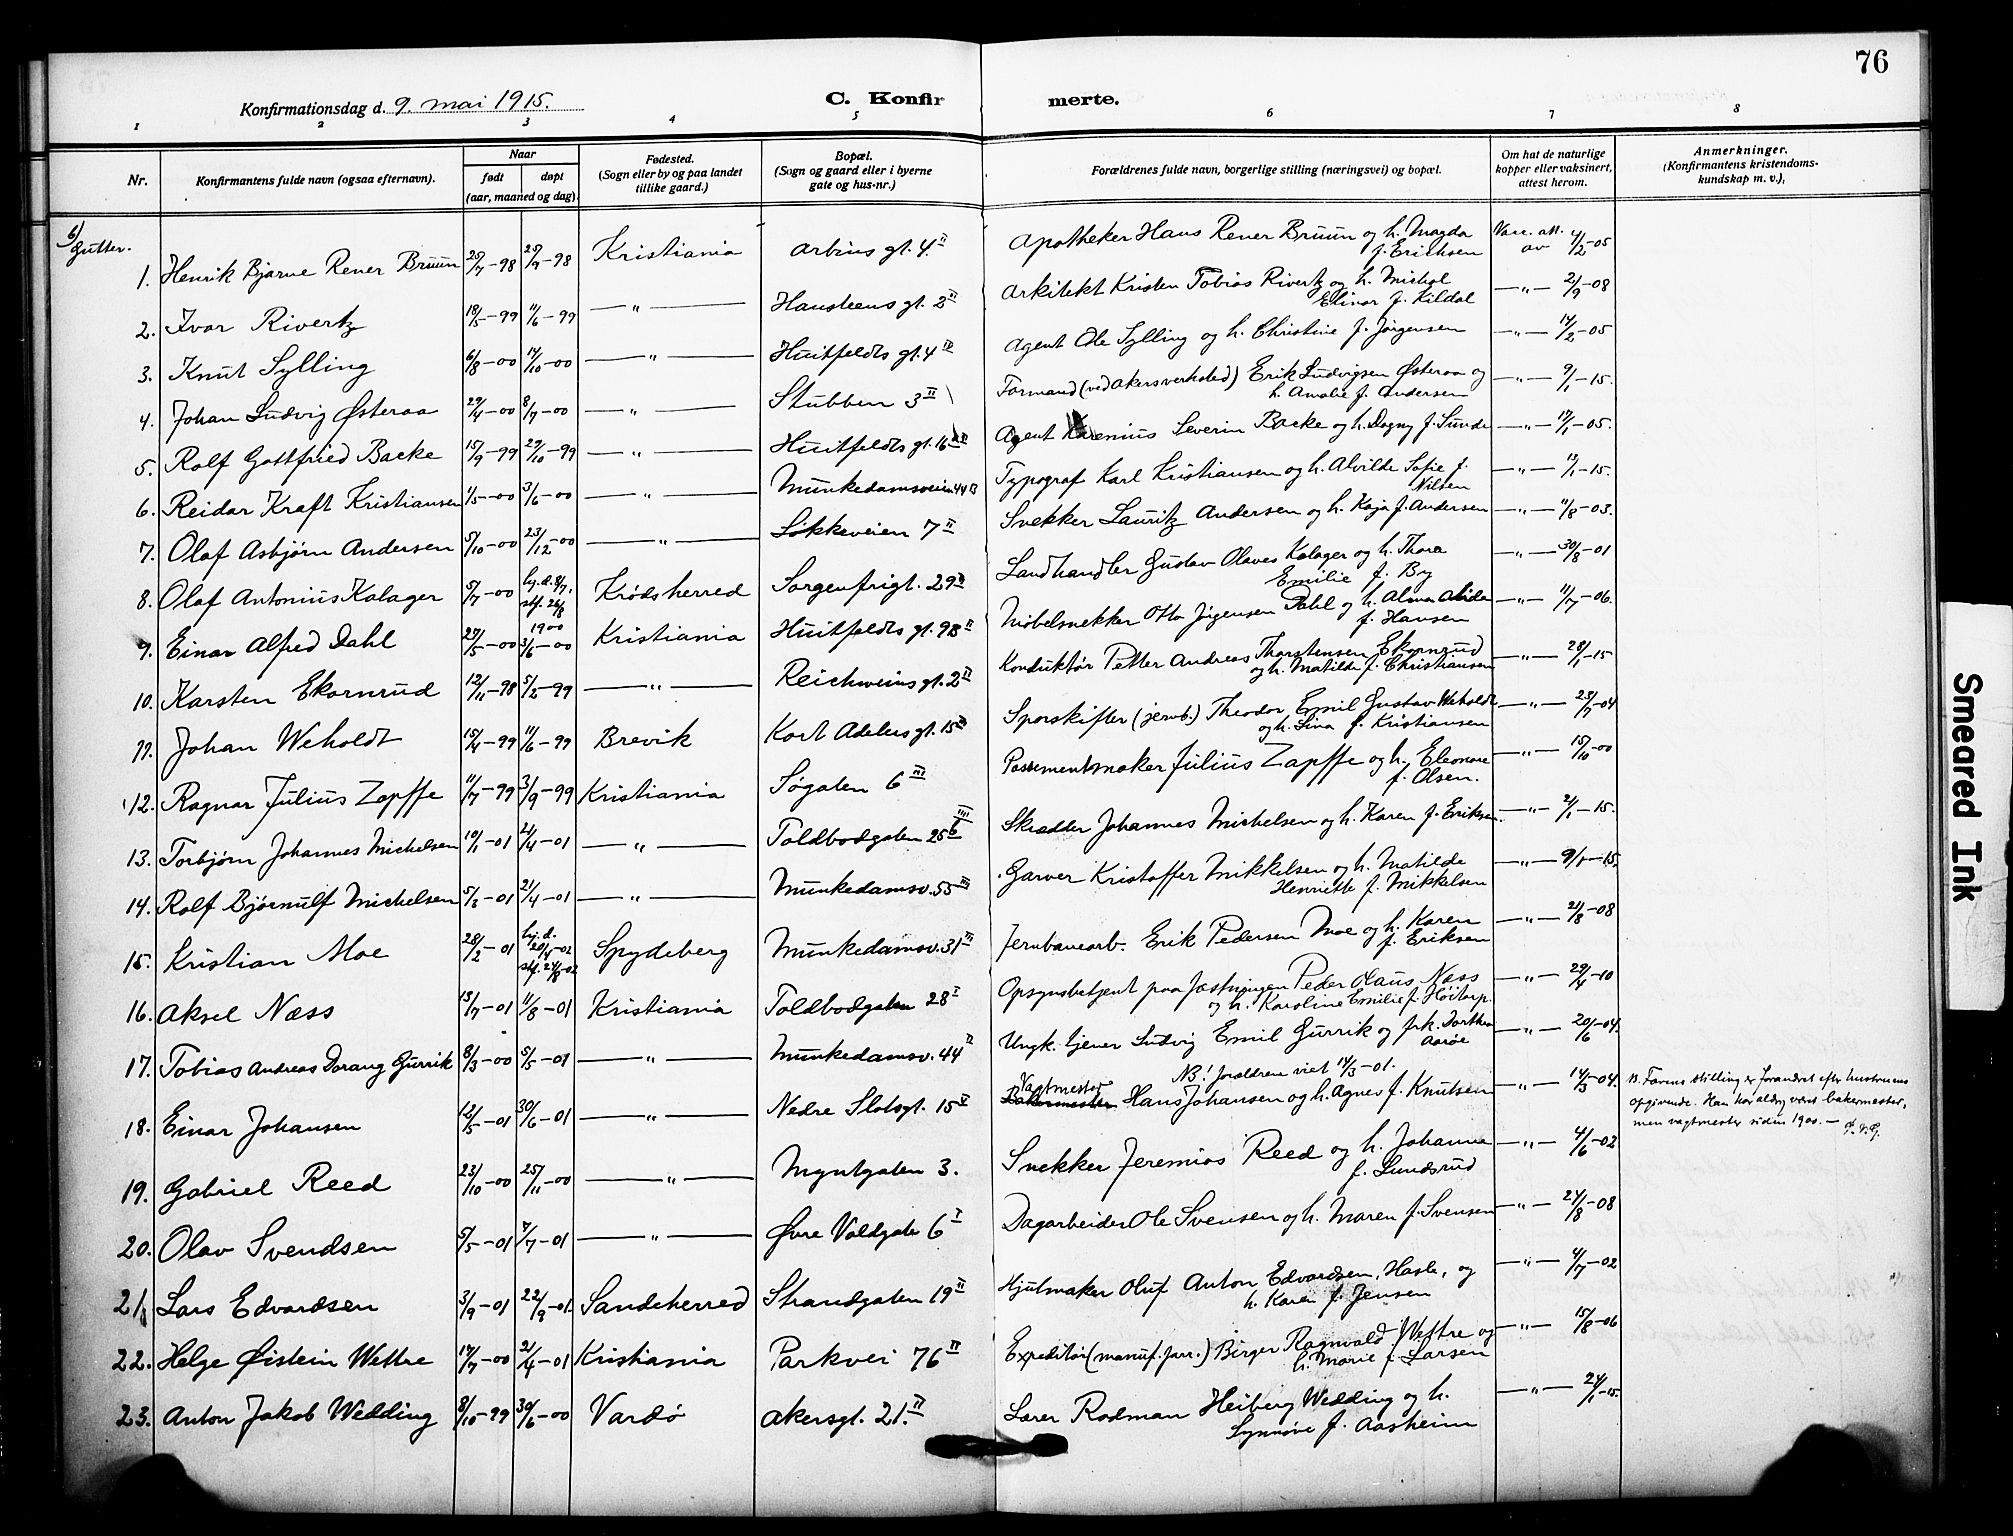 76
Konfirmationsdag d. 9. mai 1915.
C. Konfir merte.
1 2 3 4 5 6 7 8
Nr.
Konfirmantens fulde navn (ogsaa efternavn).
Naar
født døpt
(aar, maaned og dag)
Fødested.
(Sogn eller by og paa landet
tillike gaard.)
Bopæl.
(Sogn og gaard eller i byerne
gate og hus-nr.)
Forældrenes fulde navn, borgerlige stilling (næringsvei) og bopæl.
Om hat de naturlige
kopper eller vaksinert,
attest herom.
Anmerkninger.
(Konfirmantens kristendoms-
kundskap m. v.),
Gutter.
1. Henrik Bjarne Rener Bruun 25/7-98 25/9-98 Kristiania Arbins gt. 4 II Apotheker Hans Rener Bruun og h. Magda f. Erichsen Vacc. att. av 4/2-05
2. Ivar Rivertz 18/5-99 11/6-99 —"— Hansteens gt. 2 II Arkitekt Kristen Tobias Rivertz og h. Michal Elinor f. Kildal —"— 2/9-08
3. Knut Sylling 6/8-00 14/10-00 —"— Huitfeldts gt. 4 IV Agent Ole Sylling og h. Christine f. Jørgensen —"— 14/2-05
4. Johan Ludvig Østeraa 29/4-00 8/7-00 —"— Stubben 3 II Formand (ved Akersverksted) Erik Ludvigsen Østeraa og h. Amalie f. Andersen —"— 9/1-15.
5. Rolf Gottfried Backe 15/9-99 29/10-99 —"— Huitfeldts gt. 16 Agent Karenius Severin Backe og h. Dagny f. Sunde —"— 17/1-05.
6. Reidar Kraft Kristiansen 1/5-00 3/6-00 —"— Munkedamsveien 44 Typograf Karl Kristiansen og h. Alvilde Sofie f. Nilsen —"— 13/1-15.
7. Olaf Asbjørn Andersen 5/10-00 23/12-00 —"— Løkkeveien 7 II Snekker Lauritz Andersen og h. Kaja f. Andersen —"— 11/8-03.
8. Olaf Antonius Kalager 5/7-00 hj.d. 8/7, stf. 26/8 1900 Krødsherred Sorgenfrigt. 29 II Landhandler Gustav Olaves Kalager og h. Thora Emilie f. By —"— 30/8-01
9. Einar Alfred Dahl 23/5-00 3/6-00 Kristiania Huitfeldts gt. 9B II Møbelsnekker Otto Jørgensen Dahl og h. Alma Alida f. Hansen —"— 11/7-06.
10. Karsten Ekornrud 12/11-98 5/2-99 —"— Reichweins gt. 2 II Konduktør Petter Andreas Thorstensen Ekornrud og h. Matilde f. Christiansen —"— 28/1-15
11. Johan Weholdt 15/4-99 11/6-99 Brevik Kort Adelers gt. 15 III Sporskifter (jernb.) Theodor Emil Gustav Weholdt og h. Lina f. Kristiansen —"— 25/7-04
12. Ragnar Julius Zapffe 11/7-99 3/9-99 Kristiania Søgaten 6 III Possementmaker Julius Zapffe og h. Eleonore f. Olsen. —"— 15/10-00
13. Torbjørn Johannes Michelsen 10/1-01 21/4-01 —"— Toldbodgaten 25 Skrædder Johannes Michelsen og h. Karen f. Eriksen. —"— 2/1-15.
14. Rolf Bjørnulf Michelsen 5/3-01 21/4-01 —"— Munkedamsv. 55 III Garver Kristoffer Mikkelsen og h. Matilde Henriette f. Mikkelsen —"— 9/1-15.
15. Kristian Moe 28/2-01 hj.d. 20/4-02 stf. 24/8-02 Spydeberg Munkedamsv. 31 III Jernbanearb. Erik Pedersen Moe og h. Karen f. Eriksen —"— 21/8-08
16. Aksel Næss 13/7-01 11/8-01 Kristiania Toldbodgaten 28 I Opsynsbetjent paa fæstningen Peder Olaus Næss og h. Karoline Emilie f. Høitorp. —"— 29/4-10
17. Tobias Andreas Dorang Gurrik 8/3-00 5/5-01 —"— Munkedamsv. 44 II Ungk. tjener Ludvig Emil Gurrik og frk. Dorthea Aarøe —"— 20/6-04.
NB! forældrene viet 14/3-01.
18. Einar Johansen 12/5-01 30/6-01 —"— Nedre Slotsgt. 15 Vagtmester Bakermester Hans Johansen og h. Agnes f. Knutsen —"— 14/3-04.
18. Farens stilling er forandret efter hustruens
opgivende. Han har aldrig været bakermester,
men vagtmester siden 1900. —
19. Gabriel Reed 23/10-00 25/11-00 —"— Myntgaten 3. Snekker Jeremias Reed og h. Johanna f. Lundsrud —"— 4/6-02
20. Olav Svendsen 5/5-01 7/7-01 —"— Øvre Voldgate 6 I Dagarbeider Ole Svensen og h. Maren f. Svensen —"— 24/8-08
21. Lars Edvardsen 3/9-01 22/9-01 Sandeherred Strandgaten 19 II Hjulmaker Oluf Anton Edvardsen, Hasle, og h. Karen f. Jensen —"— 4/7-02
22. Helge Øistein Wettre 17/7-00 21/4-01 Kristiania Parkvei 76 II Expeditør (manuf. forr.) Birger Ragnvald Wettre og h. Marie f. Larsen —"— 15/8-06
23. Anton Jakob Wedding 8/10-99 30/6-00 Vardø Akersgt. 21. II Lærer Rodman Heiberg Wedding og h. Synnøve f. Aasheim —"— 24/1-15.
Smeared Ink